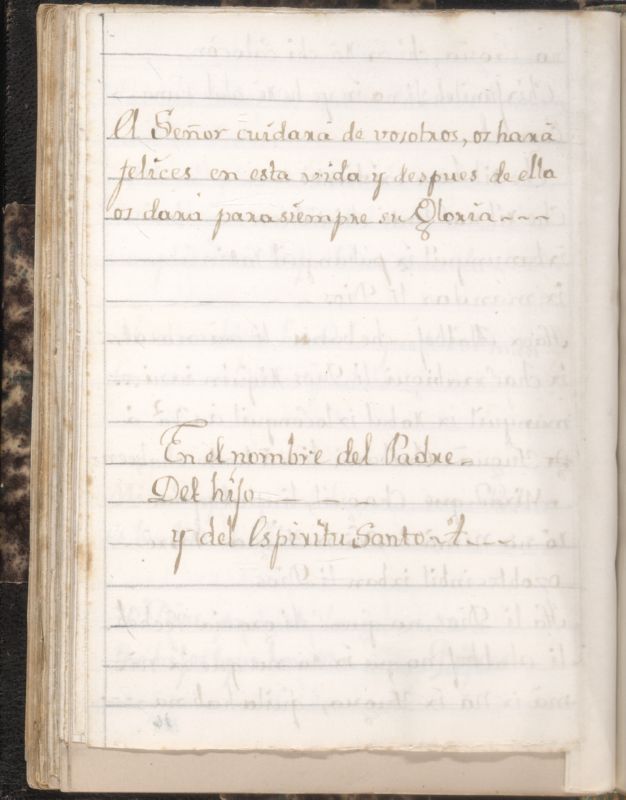 El Señor cuidara de vosotros, os hará
felices en esta vida y despues de ella
os dará para siempre su Gloria ~ ~ ~
En el nombre del Padre ~
Del hijo — — —
y del Espiritu Santo ~ A ~ ~